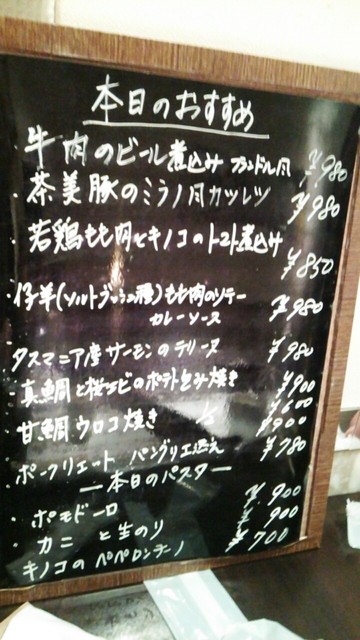 本日のおすすめ
・牛肉のビール煮込み フランドル風 ¥980
・茶美豚のミラノ風カツレツ ¥980
・若鶏もも肉とキノコのトマト煮込み ¥850
・仔羊(ソルトブッシュ種)もも肉のソテー ¥980
カレーソース
・タスマニア産サーモンのテリーヌ ¥980
・真鯛と桜エビのポテト包み焼き ¥900
¥600
・甘鯛ウロコ焼き ½ ¥900
・ポークリエット パングリエ添え ¥780
ー本日のパスター
・ポモドーロ ¥900
・カニと生のり ¥900
キノコのペペロンチーノ ¥700